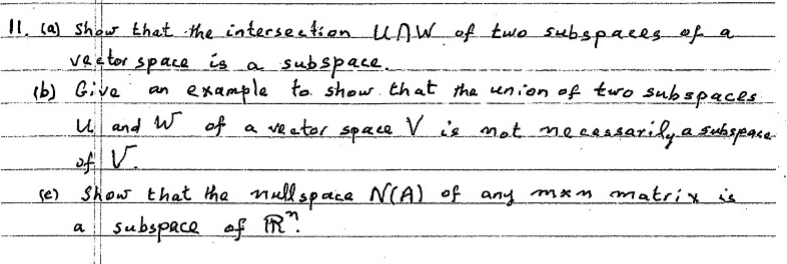 11. (a) Show that the intersection U∩W of two subspaces of a
vector space is a subspace.
(b) Give an example to show that the union of two subspaces
U and W of a vector space V is not necessarily a subspace
of V.
(c) Show that the nullspace N(A) of any m×n matrix is
a subspace of ℝⁿ.